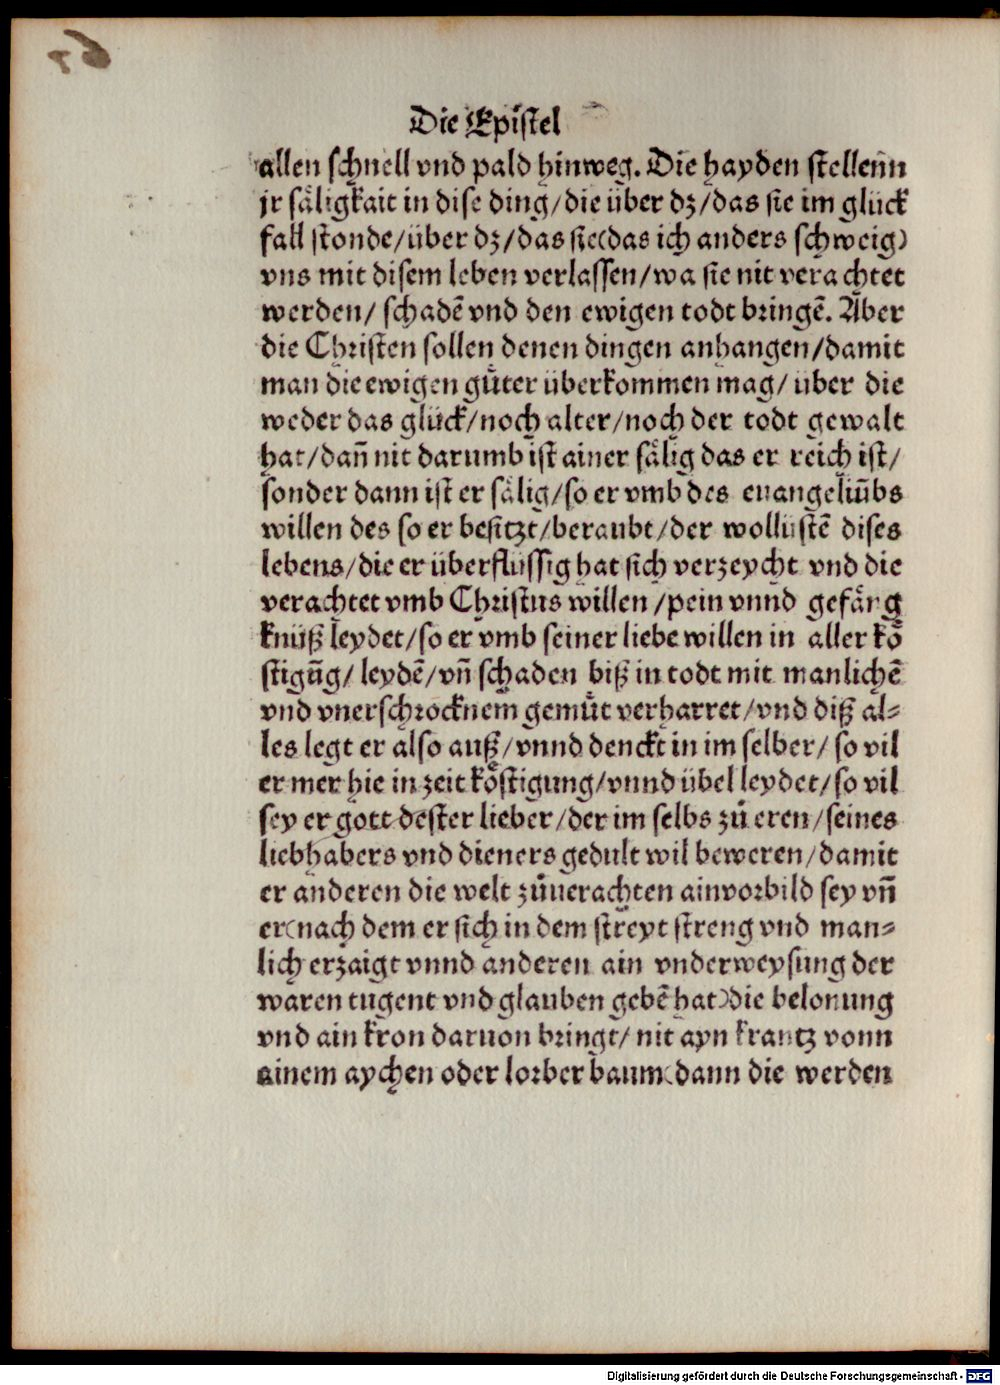 Die Epistel
allen schnell vnd pald hinweg. Die hayden stellenn
jr säligkait in dise ding/die über dz/das sie im glück
fall stonde/über dz/das sie(das ich anders schweig)
vns mit disem leben verlassen/wa sie nit verachtet
werden/ schadē vnd den ewigen todt bringē. Aber
die Christen sollen denen dingen anhangen/damit
man die ewigen gůter überkommen mag/ über die
weder das glück/noch alter/noch der todt gewalt
hat/dañ nit darumb ist ainer sälig das er reich ist/
sonder dann ist er sälig/so er vmb des euangeliūbs
willen des so er besitzt/beraubt/der wollustē dises
lebens/die er überflüssig hat sich verzeycht vnd die
verachtet vmb Christus willen /pein vnnd gefäng
knüß leydet/so er vmb seiner liebe willen in aller kö
stigūg/ leydē/vñ schaden biß in todt mit manlichē
vnd vnerschrocknem gemůt verharret/vnd diß al⸗
les legt er also auß/vnnd denckt in im selber/ so vil
er mer hie in zeit köstigung/vnnd übel leydet/so vil
sey er gott dester lieber/der im selbs zů eren/seines
liebhabers vnd dieners gedult wil beweren/damit
er anderen die welt zůuerachten ainvorbild sey vñ
er(nach dem er sich in dem streyt streng vnd man⸗
lich erzaigt vnnd anderen ain vnderweysung der
waren tugent vnd glauben gebē hat)die belonung
vnd ain kron daruon bringt/ nit ayn krantz vonn
ainem aychen oder lorber baum(dann die werden
Digitalisierung gefördert durch die Deutsche Forschungsgemeinschaft - DFG